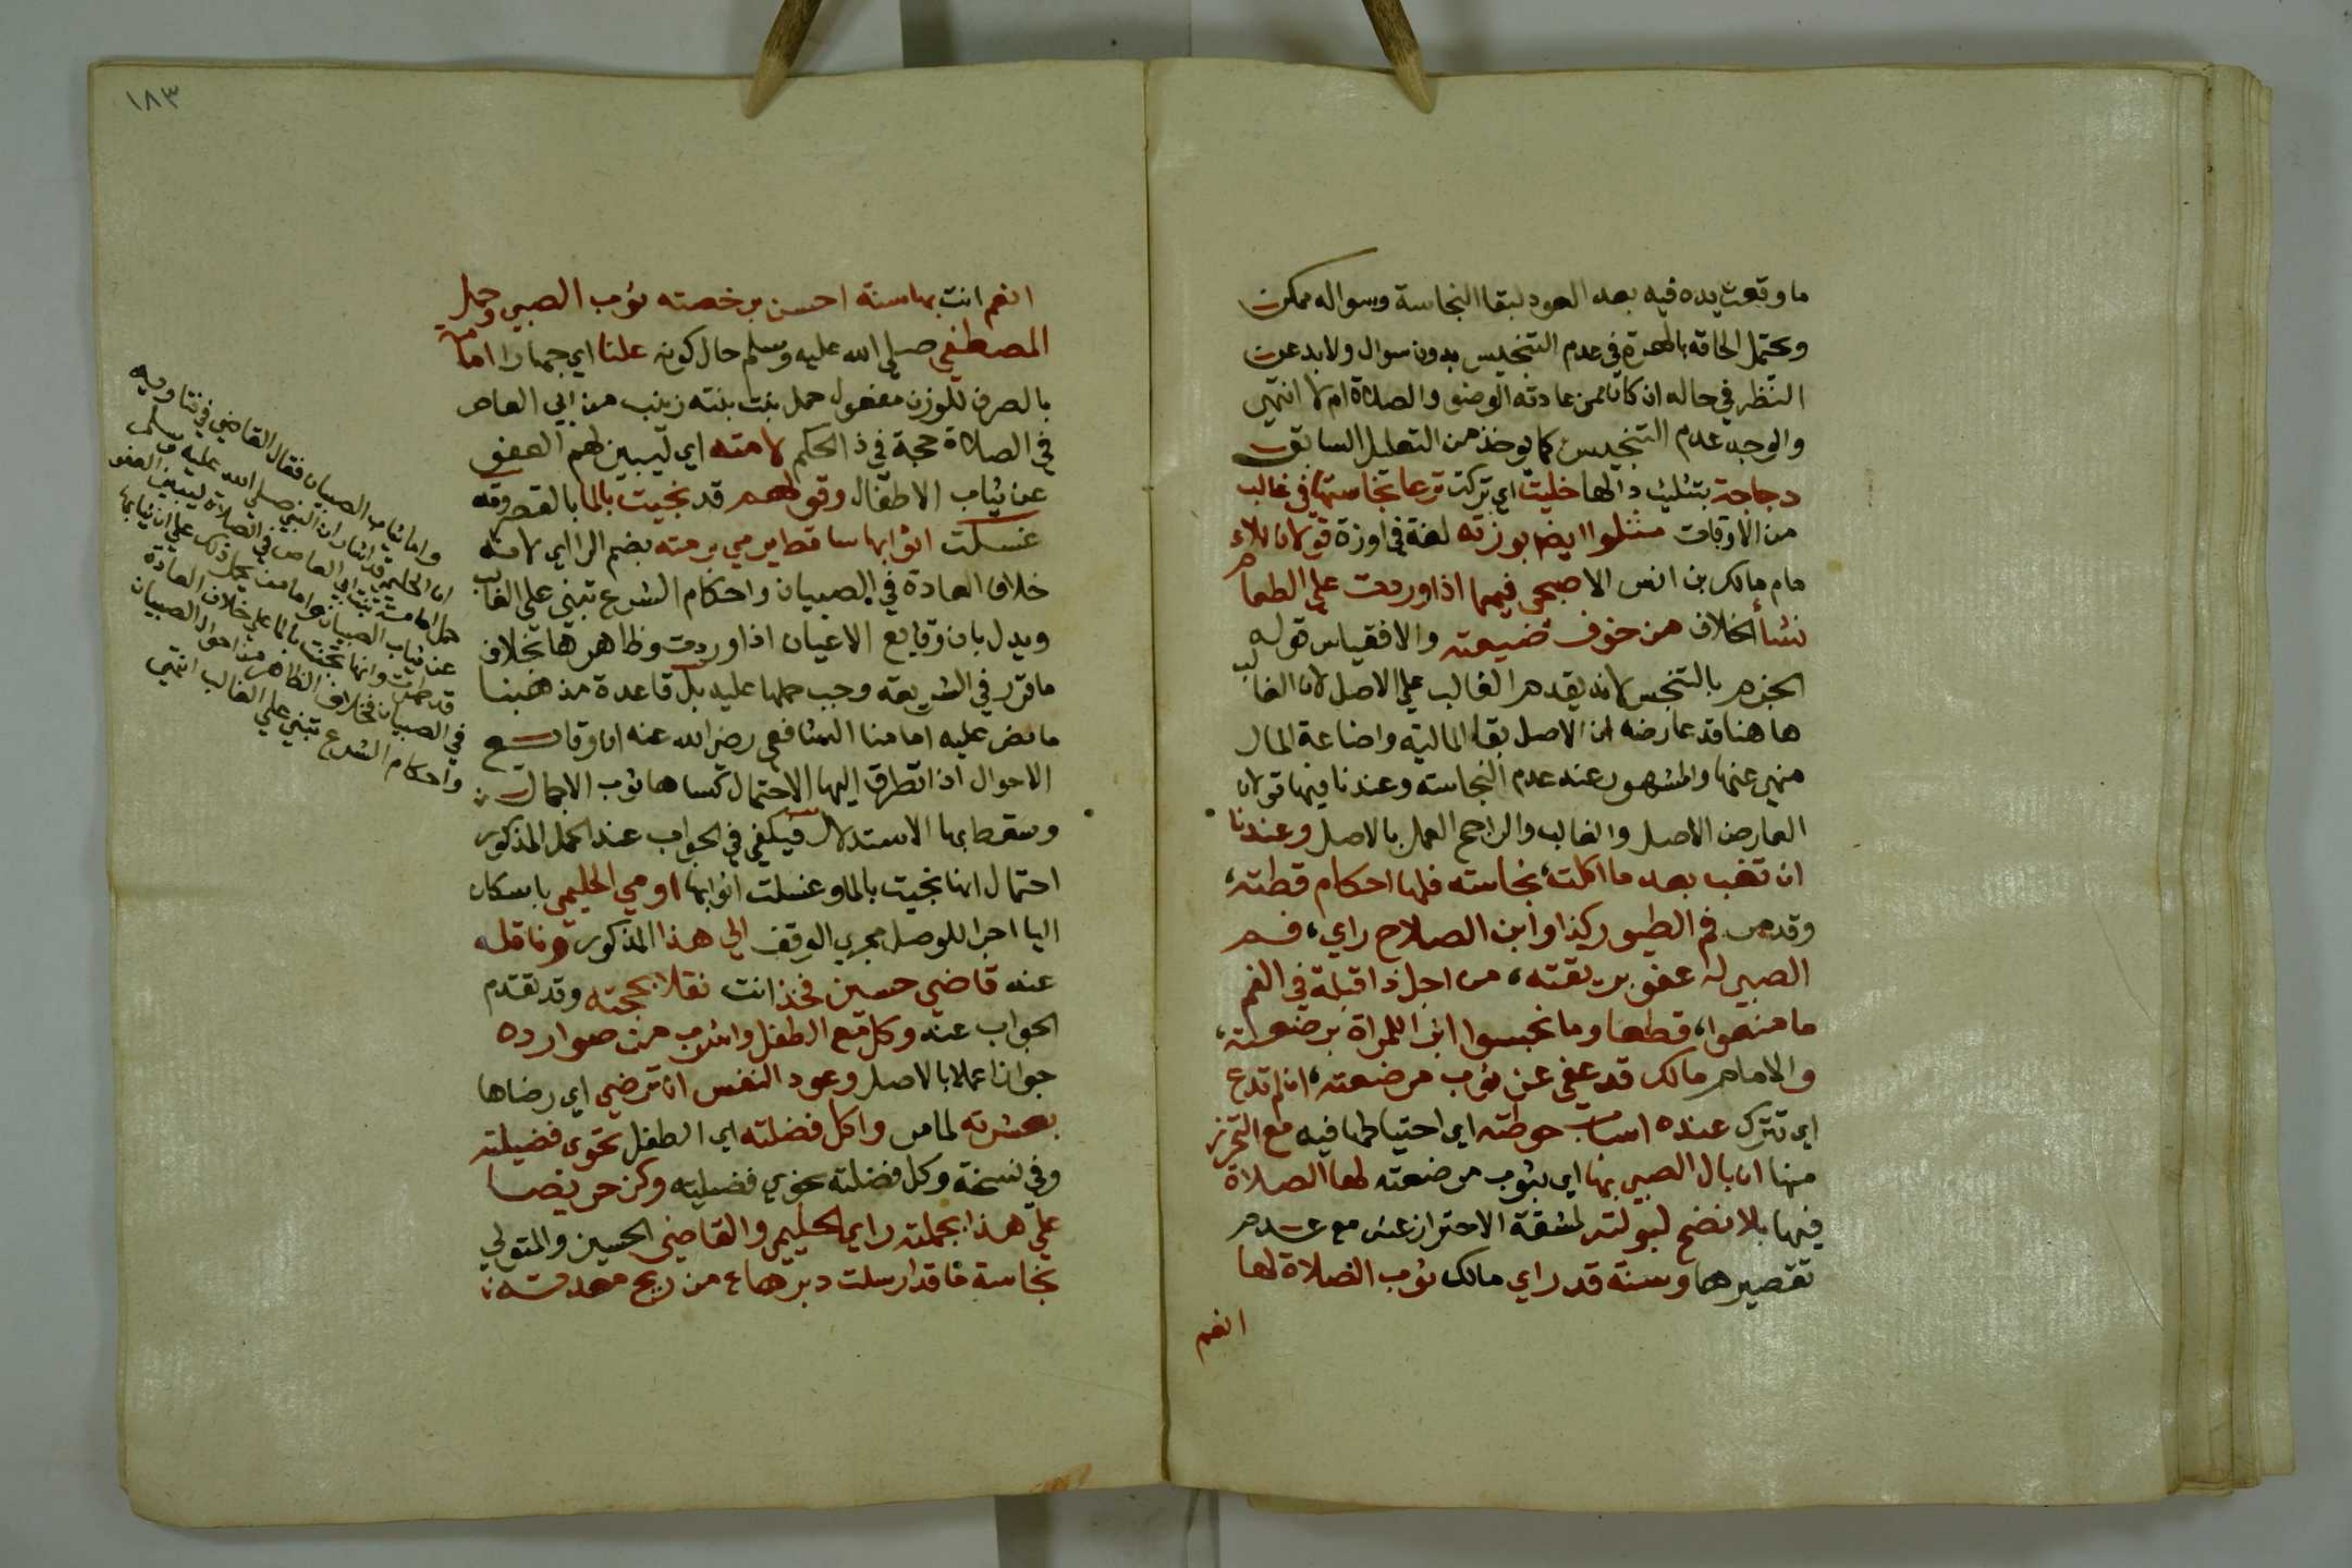 ما وقعت يده فيه بعد العود لبقا النجاسة وسواله ممكن
ويحتمل الحاقه بالهرة في عدم التنجيس بدون سوال ولا بد عن
النظر في حاله ان كان ممن عادته الوضو والصلاة ام لا انتهي
والوجه عدم التنجيس كما يوخذ من التعليل السابق
دجاجة بتثليث دالها خليت اي تركت ترعا نجاستها في غالب
من الاوقات مثلوا ايضا بوزته لغة في اوزة قولان للا
مام مالك بن انس الاصبحي فيهما اذا وردت علي الطعام
نشأ الخلاف من خوف ضيعته والافقياس قوله
الجزم بالتنجس لانه يقدم الغالب علي الاصل لان الغالب
هاهنا قد عارضه ان الاصل بقا المالية واضاعة المال
منهي عنها والمشهور عنده عدم النجاسة وعندنا فيها قولان
العارض الاصل والغالب والراجح العمل بالاصل وعندنا
ان تغب بعد ما اكلت نجاسته فلها احكام قطته
وقدمر فم الطيور كذا وابن الصلاح راي فم
الصبي له عفو بريقته من اجل ذا قبلة في الفم
ما منعوا قطعا وما نجسوا ابزا المراة برضعته
والامام مالك قد عفي عن ثوب مرضعته ان لم تدع
اي تترك عنده اسباب حوطته اي احتياطها فيه مع التحرز
منها ان بال الصبي بها اي بثوب مرضعته لها الصلاة
فيها بلا نضح لبولته لمشقة الاحتراز عنه مع عدم
تقصيرها وسنة قد راي مالك ثوب الصلاة لها
انعم
١٨٣
انعم انت بها سنة احسن برخصته ثوب الصبي وحمل
المصطفي صلي الله عليه وسلم حال كونه علنا اي جهارا امامة
بالصرف للوزن مفعول حمل بنت بنته زينب من ابي العاص
في الصلاة حجة في ذ الحكم لامته اي ليبين لهم العفو
عن ثياب الاطفال وقولهم قد نجيت بالما بالقصر وقد
غسلت اثوابها ساقط يرمي برمته بضم الرا اي لانه
خلاف العادة في الصبيان واحكام الشرع تبني علي الغالب
ويدل بان وقايع الاعيان اذا وردت وظاهرها بخلاف
ما قرر في الشريعة وجب حملها عليه بل قاعدة مذهبنا
ما نص عليه امامنا الشافعي رضي الله عنه ان وقايع
الاحوال اذا تطرق اليها الاحتمال كساها ثوب الاجمال
وسقط بها الاستدلال فيكفي في الجواب عند الحمل المذكور
احتمال انها نجيت بالما وغسلت اثوابها اومي الحليمي باسكان
اليا اجرا للوصل مجري الوقف الي هذا المذكور وناقله
عنه قاضي حسين فخذ انت نقلا بحجته وقد تقدم
الجواب عنه وكل مع الطفل واشرب من موارده
جوازا عملا بالاصل وعود النفس ان ترضي اي رضاها
بعشرته لما مر واكل فضلته اي الطفل تحوي فضيلته
وفي نسخة وكل فضلته تحوي فضيلته وكن حريصا
علي هذا بجملته راي الحليمي والقاضي الحسين والمتولي
نجاسة ما قد ارسلت دبرها من ريح معدته
واما ثياب الصبيان فقال القاضي في فتاويه
ان الحليمي قد اشار ان النبي صلي الله عليه وسلم
حمل امامة بنت ابي العاص في الصلاة ليبين العفو
عن ثياب الصبيان واما من يحمل ذلك علي ان ثيابها
قد طهرت وانها نجيت بالما علي خلاف العادة
في الصبيان فخلاف الظاهر من احوال الصبيان
واحكام الشرع تبني علي الغالب انتهي